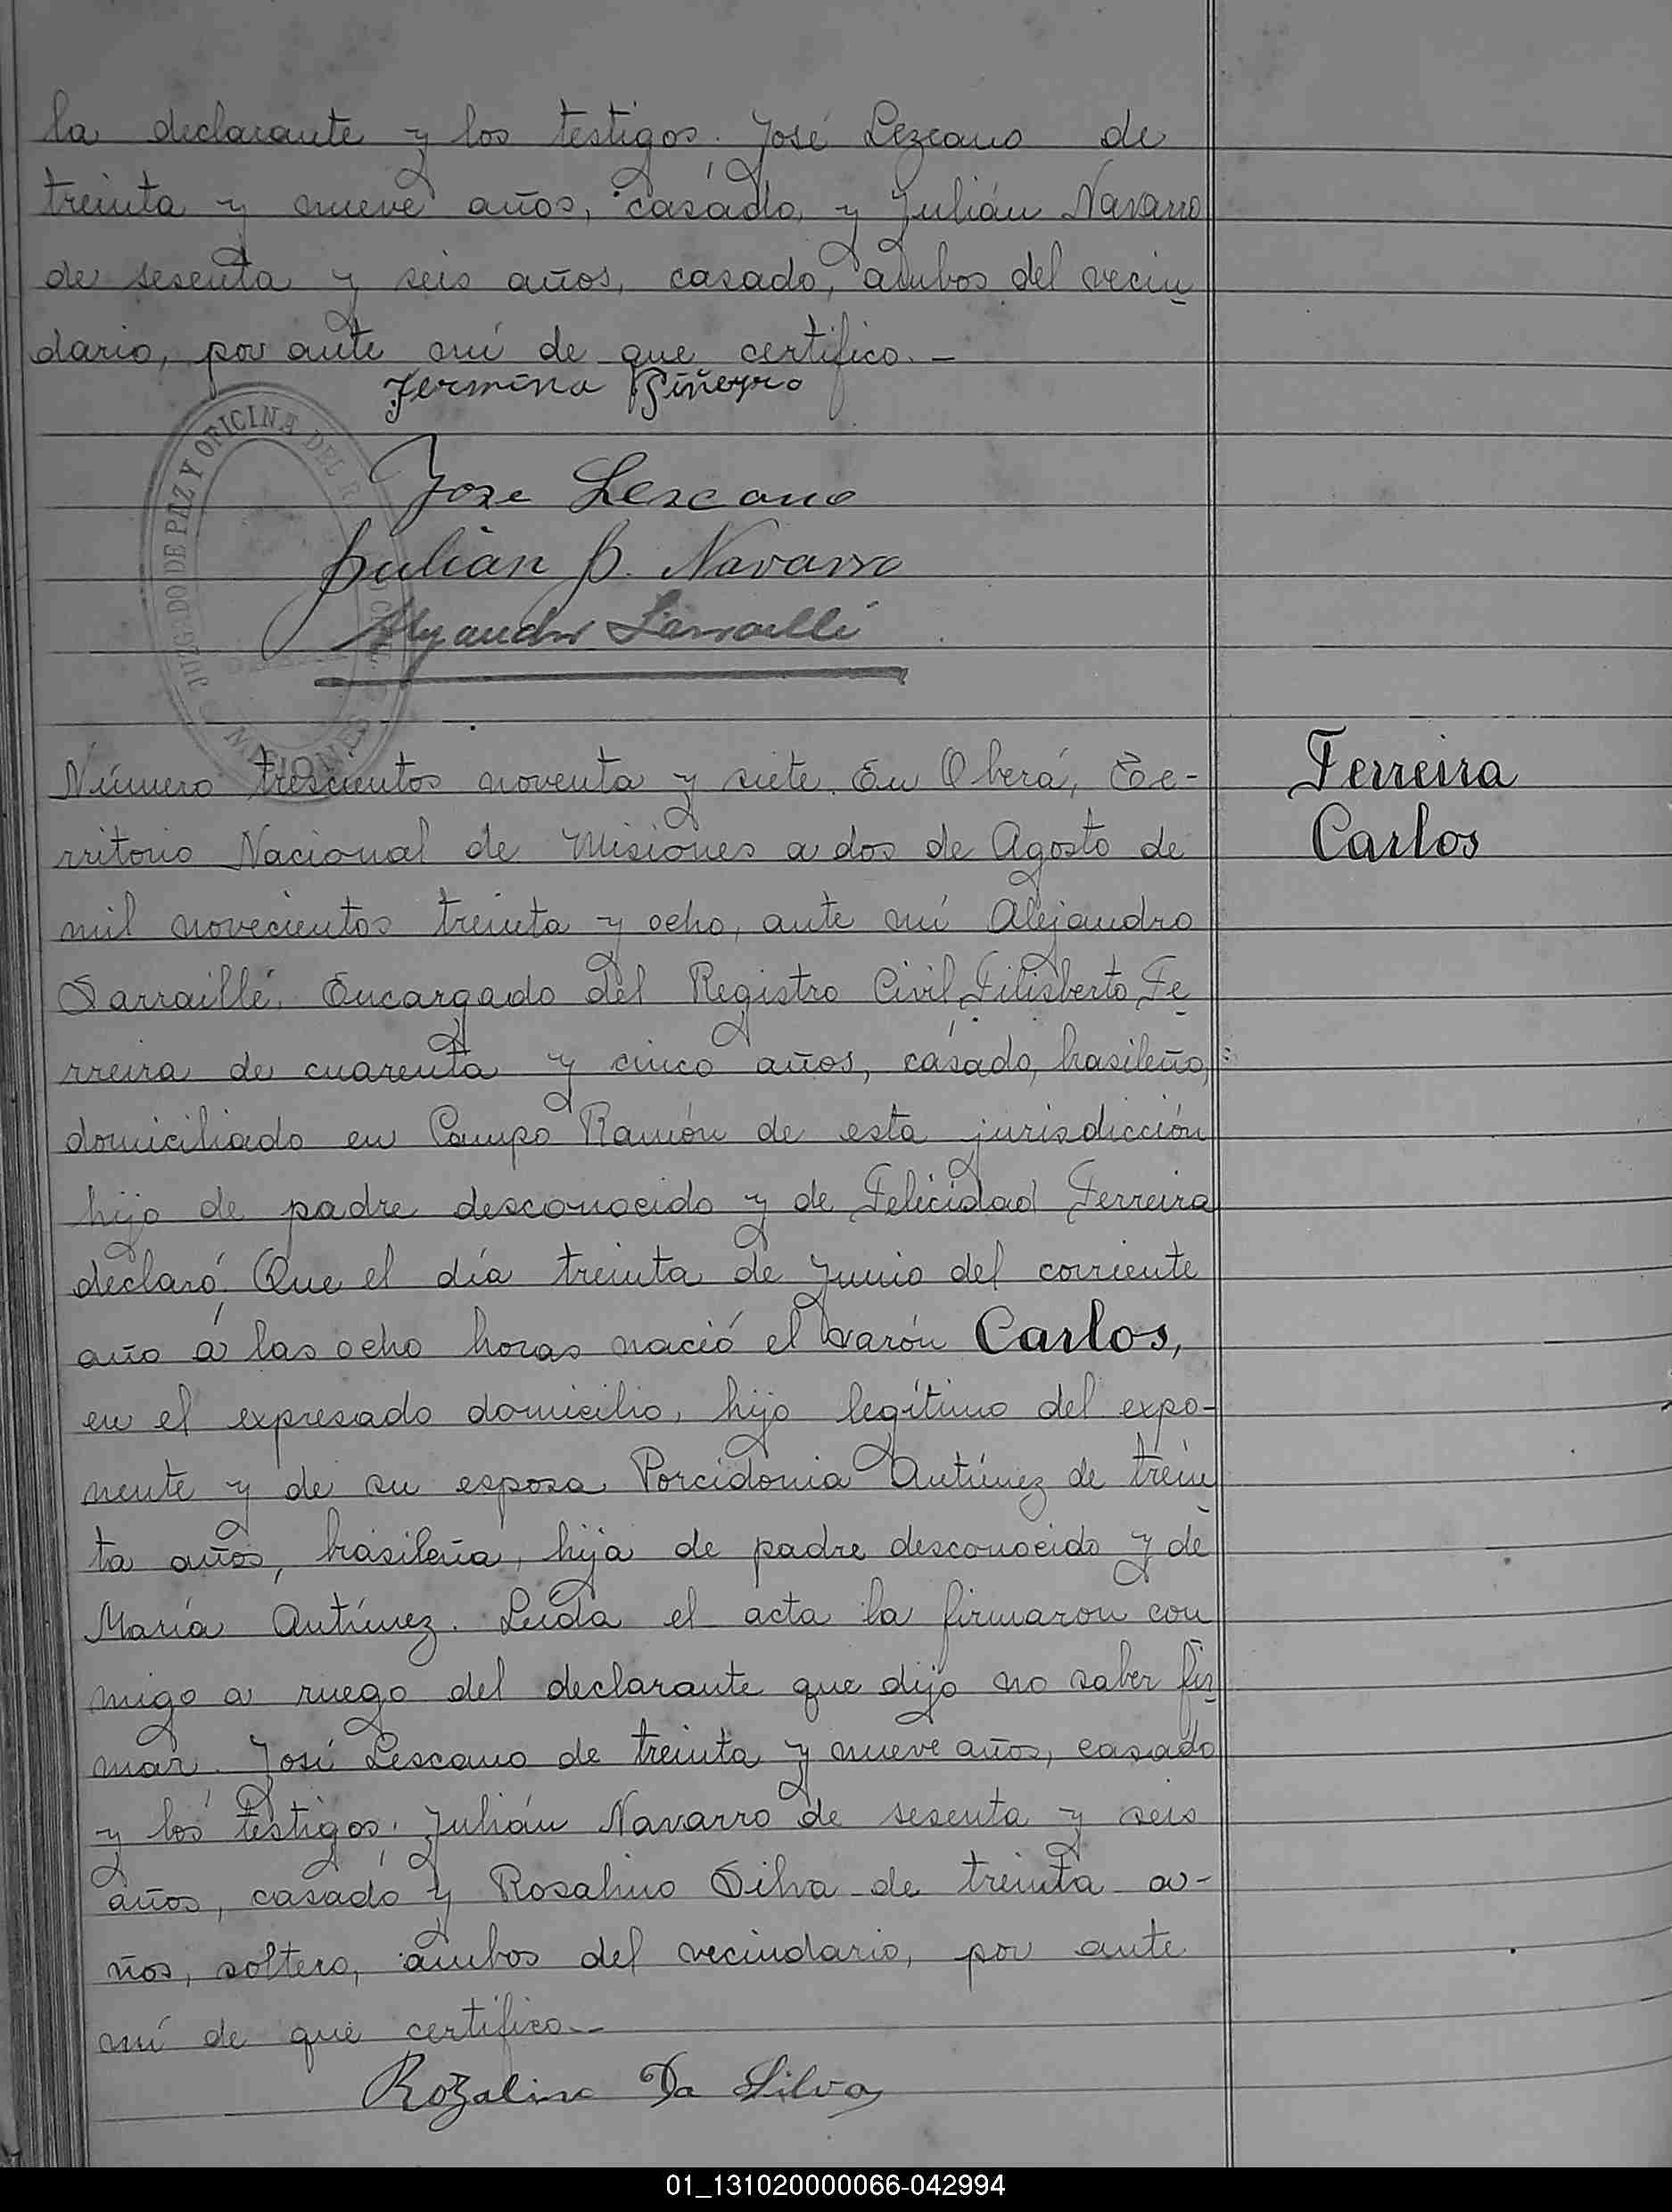 la declarante y los testigos. José Lezcano de
treinta y nueve años, casado, y Julián Navarro
de sesenta y seis años, casado, ambos del vecin
dario, por ante mí de que certifico. -
Fermina Piñeyro
JUZGADO DE PAZ Y OFICINA DEL
MISIONES
Jose Lescano
Julian B. Navarro
Alejandro Sarraillé
Número trescientos noventa y siete. En Oberá, Te-
Ferreira
rritorio Nacional de Misiones a dos de Agosto de
Carlos
mil novecientos treinta y ocho, ante mí Alejandro
Sarraillé, Encargado del Registro Civil, Filisberto Fe
rreira de cuarenta y cinco años, casado, brasileño,
domiciliado en Campo Ramón de esta jurisdicción
hijo de padre desconocido y de Felicidad Ferreira
declaró: Que el día treinta de Junio del corriente
año á las ocho horas nació el varón Carlos,
en el expresado domicilio, hijo legítimo del expo-
nente y de su esposa Porcidonia Antúnez de trein
ta años, brasileña, hija de padre desconocido y de
María Antúnez. Leída el acta la firmaron con
migo a ruego del declarante que dijo no saber fir
mar. José Lescano de treinta y nueve años, casado
y los testigos. Julián Navarro de sesenta y seis
años, casado y Rosalino Silva de treinta a-
ños, soltero, ambos del vecindario, por ante
mí de que certifico. -
Rozalino Da Silva
01_131020000066-042994